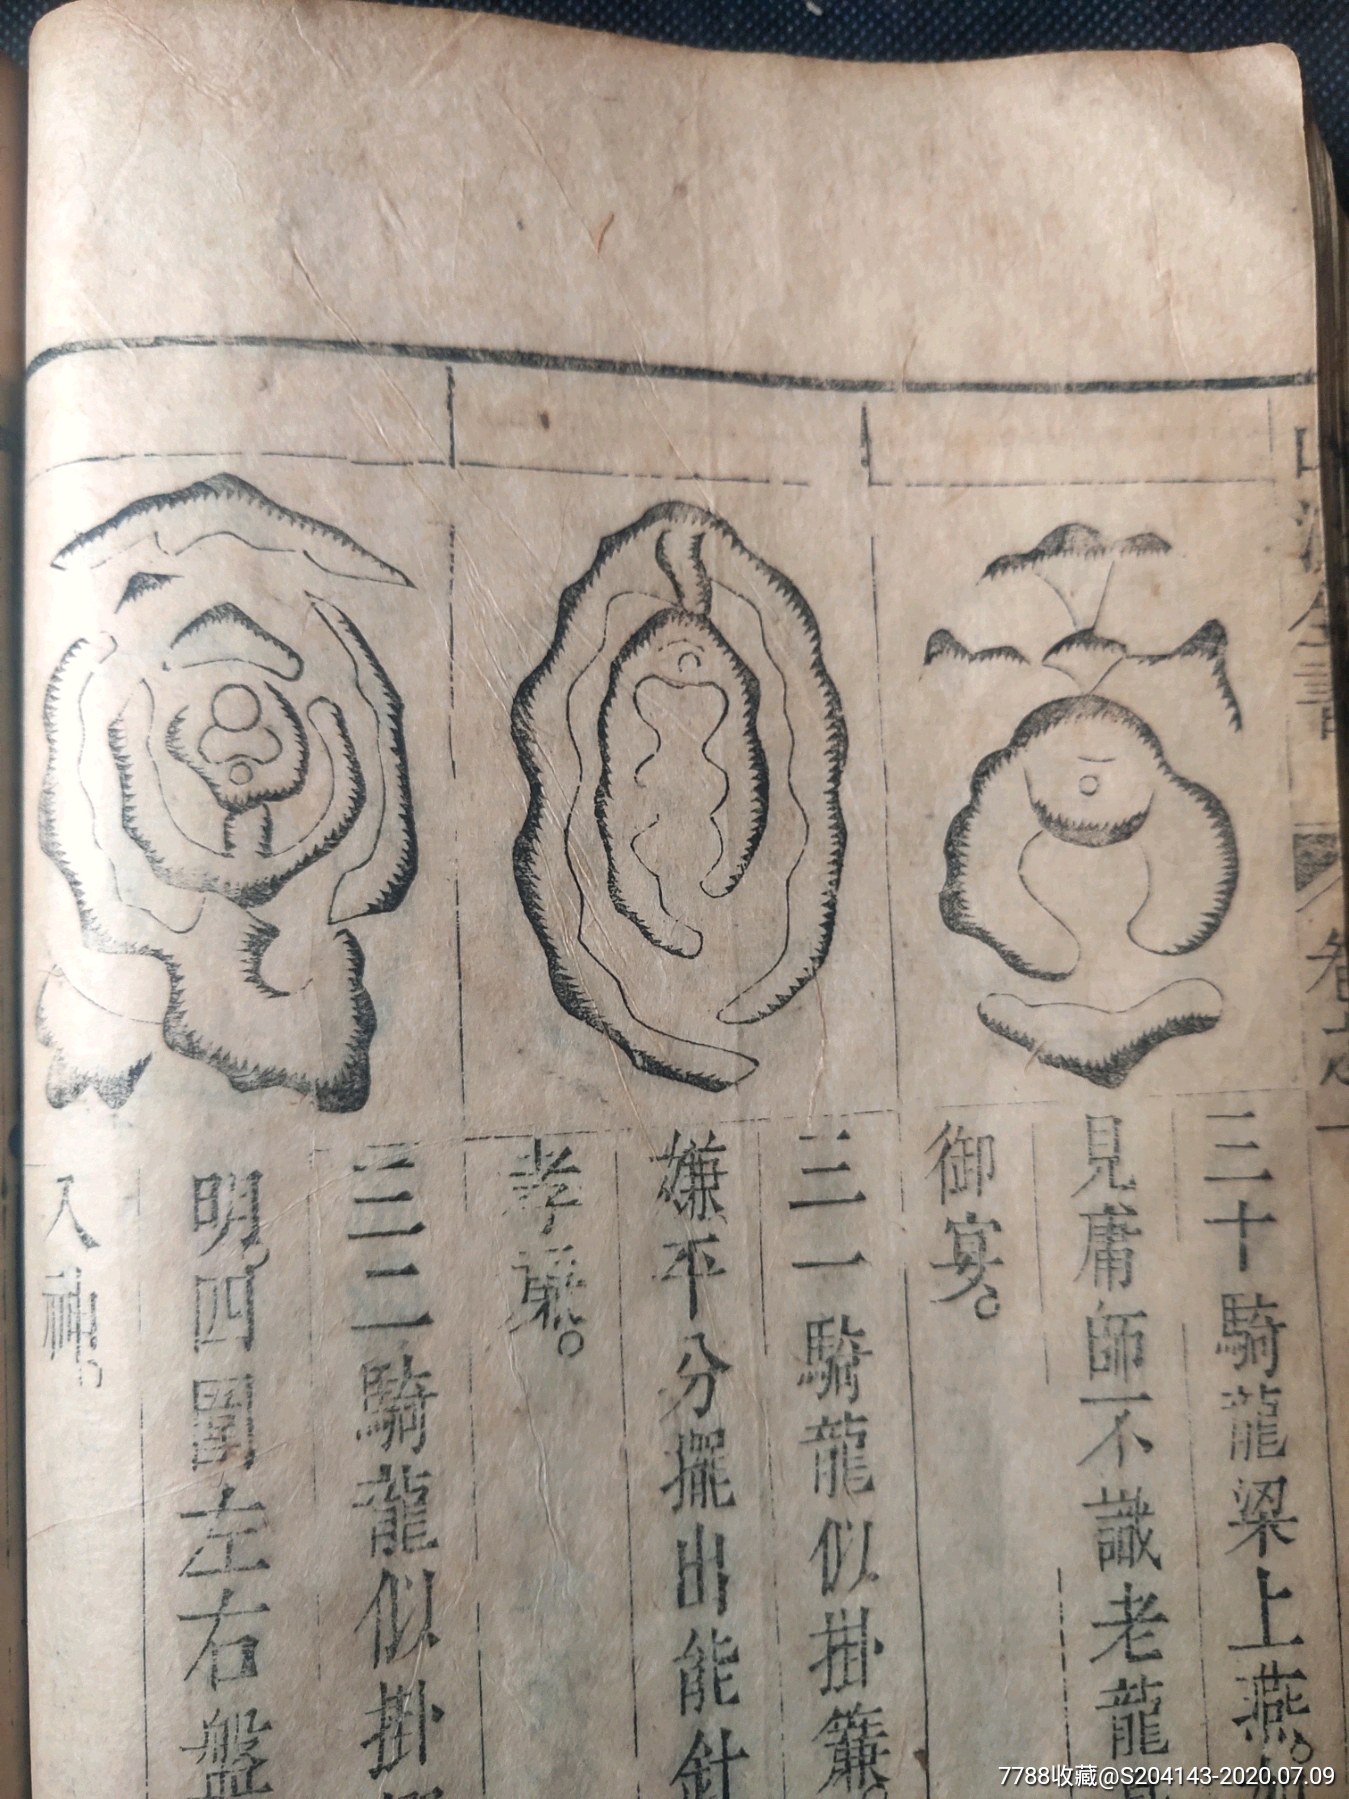 三十騎龍梁上燕。
見庸師不識老龍
御宴。
三一騎龍似掛簾。
嫌平分擺出能針
孝廉。
三二騎龍似掛
明。四圍左右盤
入神。
7788收藏@S204143-2020.07.09